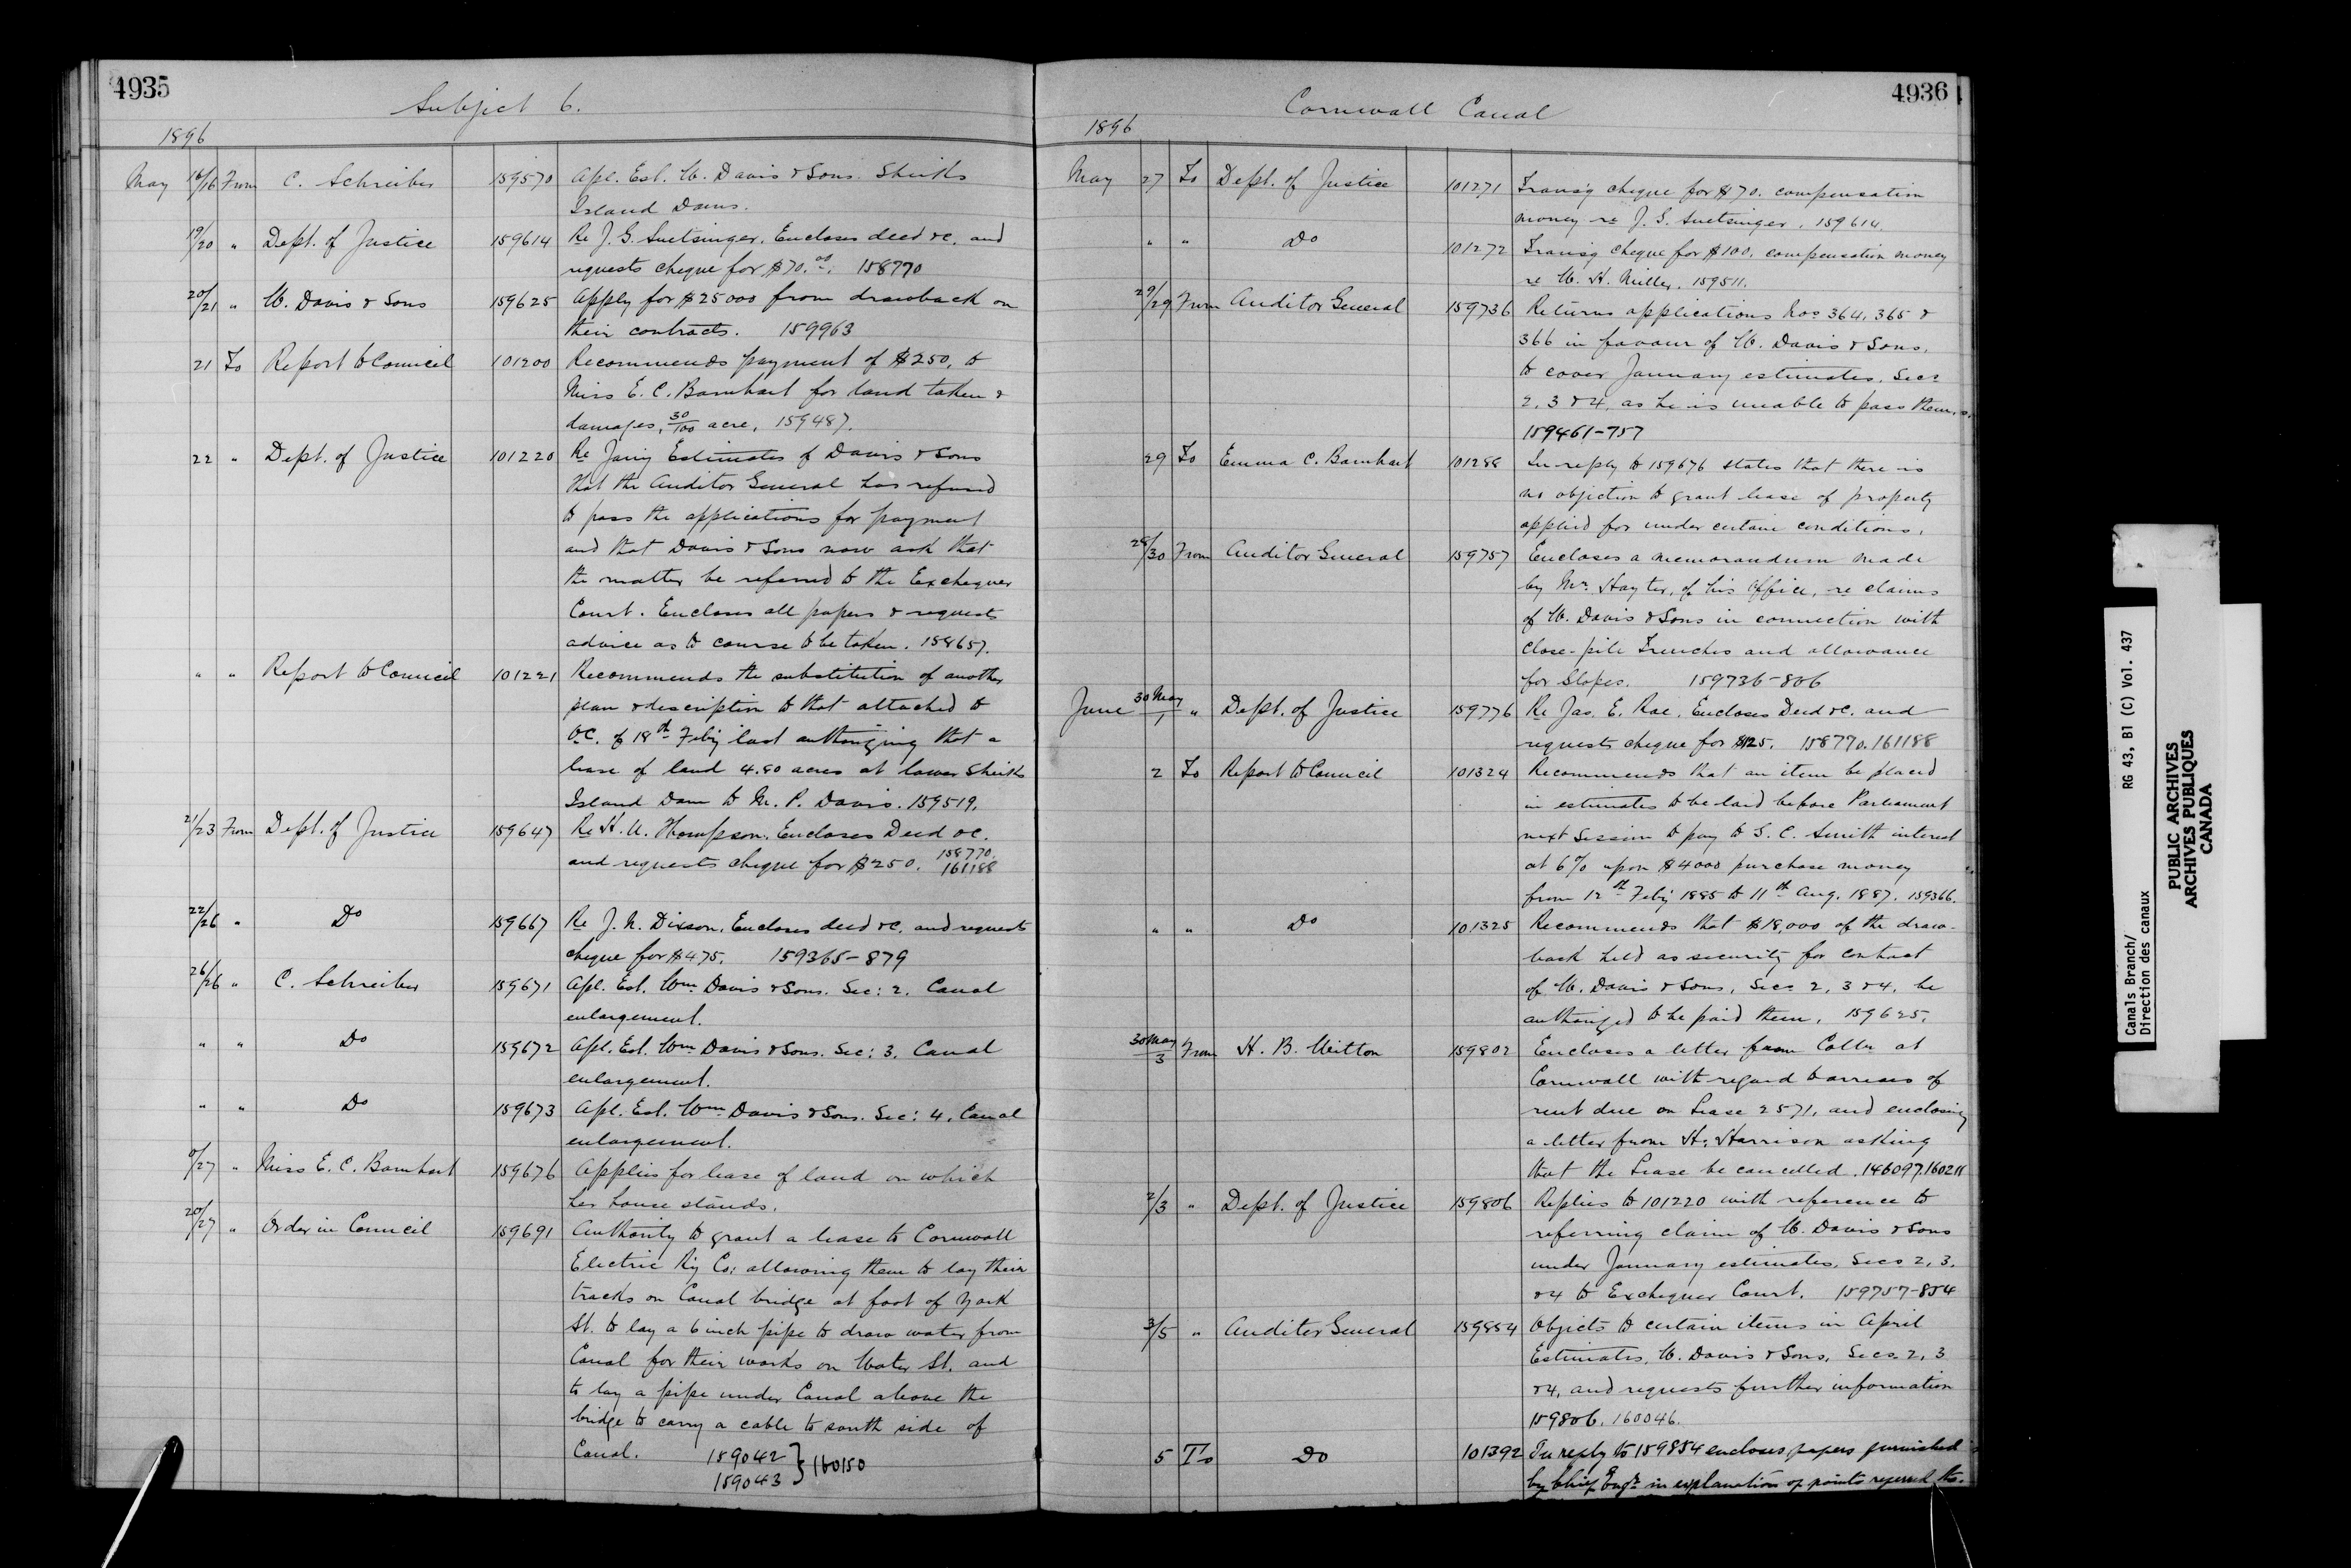 4935
Subject 6.
1896
May 16/16 From C. Schreiber 159570 Apl. Est. W. Davis & Sons. Sheiks
Island Dams.
19/20 " Dept. of Justice 159614 Re J. G. Suetsinger. Encloses deed &c. and
requests cheque for $70.00. 158770
20/21 " W. Davis & Sons 159625 Apply for $25000 from drawback on
their contracts. 159963
21 To Report to Council 101200 Recommends payment of $250, to
Miss E. C. Barnhart for land taken &
damages, 30/100 acre, 159487.
22 " Dept. of Justice 101220 Re Jany Estimates of Davis & Sons
that the Auditor General has refused
to pass the applications for payment
and that Davis & Sons now ask that
the matter be referred to the Exchequer
Court. Encloses all papers & requests
advice as to course to be taken. 158657.
" " Report to Council 101221 Recommends the substitution of another
plan & description to that attached to
O.C. of 18th Feby last authorizing that a
lease of land 4.80 acres at lower Sheiks
Island Dam to M. P. Davis. 159519.
21/23 From Dept. of Justice 159647 Re H. U. Thompson. Encloses Deed &c.
and requests cheque for $250. 158770.
161188
22/26 " Do 159667 Re J. N. Dixson. Encloses deed &c. and requests
cheque for $475. 159365-879
26/26 " C. Schreiber 159671 Apl. Est. Wm Davis & Sons. Sec: 2. Canal
enlargement.
" " Do 159672 Apl. Est. Wm Davis & Sons. Sec: 3. Canal
enlargement.
" " Do 159673 Apl. Est. Wm Davis & Sons. Sec: 4. Canal
enlargement.
0/27 " Miss E. C. Barnhart 159676 Applies for lease of land on which
her house stands.
20/27 " Order in Council 159691 Authority to grant a lease to Cornwall
Electric Ry Co: allowing them to lay their
tracks on Canal bridge at foot of York
St. to lay a 6 inch pipe to draw water from
Canal for their works on Water St. and
to lay a pipe under Canal above the
bridge to carry a cable to south side of
Canal. 159042 } 160150
159043
4936
Cornwall Canal
1896
May 27 To Dept. of Justice 101271 Transg cheque for $70. compensation
money re J. G. Suetsinger. 159614.
" " Do 101272 Transg cheque for $100. compensation money
re W. H. Miller. 159511.
29/29 From Auditor General 159736 Returns applications Nos 364, 365 &
366 in favour of W. Davis & Sons.
to cover January estimates. Secs
2, 3 & 4, as he is unable to pass them.
159461-757
29 To Emma C. Barnhart 101288 In reply to 159676 states that there is
no objection to grant lease of property
applied for under certain conditions.
28/30 From Auditor General 159757 Encloses a memorandum made
by Mr. Hayter, of his Office, re claims
of W. Davis & Sons in connection with
close-pile Trenches and allowance
for Slopes. 159736-806
June 30 May/1 " Dept. of Justice 159776 Re Jas. E. Rae. Encloses Deed &c. and
requests cheque for $125. 158770.161188
2 To Report to Council 101324 Recommends that an item be placed
in estimates to be laid before Parliament
next Session to pay to S. C. Smith interest
at 6% upon $4000 purchase money
from 12th Feby 1885 to 11th Aug. 1887. 159366.
" " Do 101325 Recommends that $18,000 of the draw-
back held as security for contract
of W. Davis & Sons, Secs 2, 3 & 4, be
authorized to be paid them. 159625.
30 May/3 From H. B. Witton 159802 Encloses a letter from Collr at
Cornwall with regard to arrears of
rent due on Lease 2571, and enclosing
a letter from H. Harrison asking
that the Lease be cancelled. 146097.160211
2/3 " Dept. of Justice 159806 Replies to 101220 with reference to
referring claim of W. Davis & Sons
under January estimates, Secs 2, 3.
& 4 to Exchequer Court. 159757-854
3/5 " Auditor General 159854 Objects to certain items in April
Estimates, W. Davis & Sons, Secs 2, 3
& 4, and requests further information
159806. 160046.
5 To Do 101392 In reply to 159854 encloses papers furnished
by Chief Engr in explanation of points referred to.
Canals Branch/ RG 43, B1 (C) Vol. 437
Direction des canaux
PUBLIC ARCHIVES
ARCHIVES PUBLIQUES
CANADA